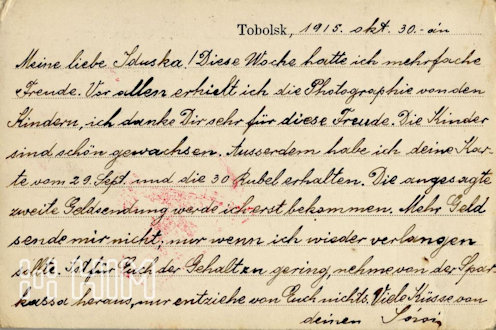 Tobolsk, 1915. okt. 30.-án
Meine liebe Iduska! Diese Woche hatte ich mehrfache
Freude. Vor allen erhielt ich die Photographie von den
Kindern, ich danke Dir sehr für diese Freude. Die Kinder
sind schön gewachsen. Ausserdem habe ich deine Kar-
te vom 29. Sept. und die 30 Rubel erhalten. Die angesagte
zweite Geldsendung werde ich erst bekommen. Mehr Geld
sende mir nicht, nur wenn ich wieder verlangen
sollte. Ist für Euch der Gehalt zu gering, nehme von der Spar-
kassa heraus, nur entziehe von Euch nichts. Viele Küsse von
deinen